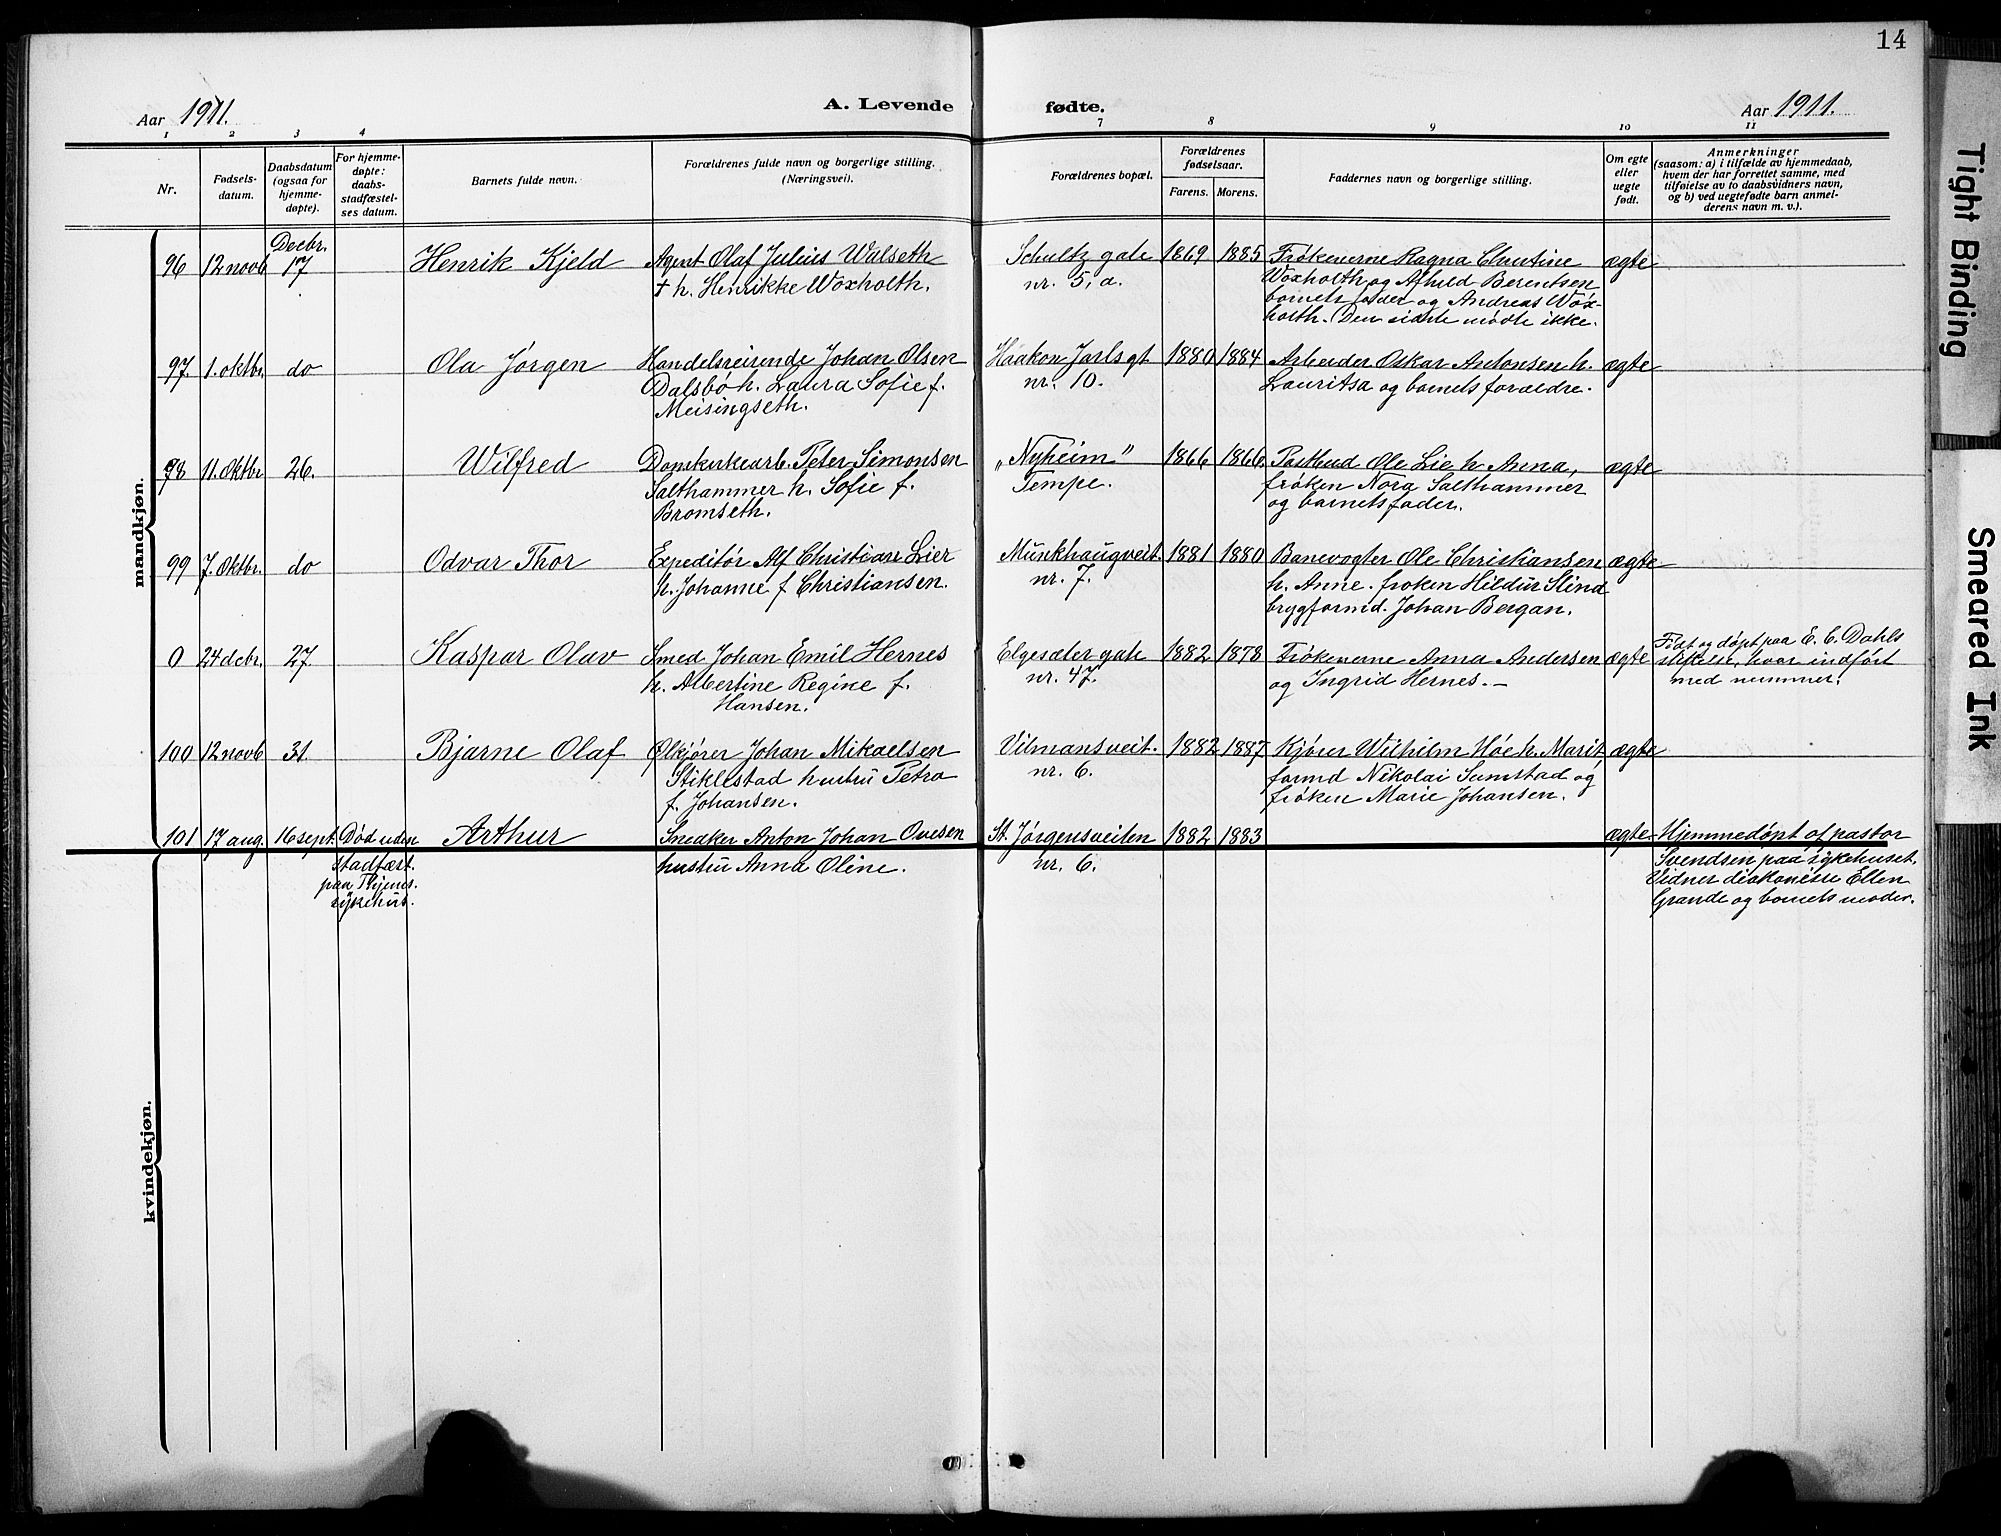 14
Aar 1911.
A. Levende fødte.
Aar 1911.
1 2 3 4 7 8 9 10 11
Nr.
Fødsels-
datum.
Daabsdatum
(ogsaa for
hjemme-
døpte).
For hjemme-
døpte:
daabs-
stadfæstel-
ses datum.
Barnets fulde navn.
Forældrenes fulde navn og borgerlige stilling.
(Næringsvei).
Forældrenes bopæl.
Forældrenes
fødselsaar.
Farens. Morens.
Faddernes navn og borgerlige stilling.
Om egte
eller
uegte
født.
Anmerkninger
(saasom: a) i tilfælde av hjemmedaab,
hvem der har forrettet samme, med
tilføielse av to daabsvidners navn,
og b) ved uegtefødte barn anmel-
derens navn m. v.).
mandkjøn.
Decbr.
96 12 novb. 17 Henrik Kjeld Agent Olaf Julius Walseth Schultz gate 1869 1885 Frøknerne Ragna Christine ægte
+ h. Henrikke Woxholth. nr. 5, a. Woxholth og Alfhild Berentsen
barnets fader og Andreas Wox-
holth. (Den sidste mødte ikke.
97. 1. oktbr. do Ola Jørgen Handelsreisende Johan Olsen Haakon Jarls gt 1880 1884 Arbeider Oskar Antonsen h. ægte
Dalsbö h. Laura Sofie f. nr. 10. Lauritsa og barnets forældre.
Meisingseth.
98 11. Oktbr 26. Wilfred Domkirkearb. Peter Simonsen „Nyheim" 1866 1866 Postbud Ole Lie h. Anna, ægte
Salthammer h. Sofie f. Tempe. frøken Nora Salthammer
Bromseth. og barnets fader.
99 7. Oktbr. do Odvar Thor Expeditør Alf Christian Lier Munkhaugveit. 1881 1880 Banevogter Ole Christiansen ægte
h. Johanne f Christiansen. nr. 7. h. Anne. frøken Hildur Stind
brygformd. Johan Bergan.
0 24 dcbr. 27. Kaspar Olav Smed Johan Emil Hernes Elgesæter gate 1882 1878 Frøknerne Anna Andersen ægte Født og døpt paa E. C. Dahls
h. Albertine Regine f. nr. 47. og Ingrid Hernes. – stiftelse, hvor indført
Hansen. med nummer.
100 12 novb 31. Bjarne Olaf Ølkjører Johan Mikaelsen Vilmansveit. 1882 1887 Kjører Wilhelm Høe h. Marit, ægte
Stiklestad hustru Petra nr. 6. formd Nikolai Sumstad og
f. Johansen. frøken Marie Johansen.
101 17 aug. 16 sept. Død uden Arthur Snedker Anton Johan Ovesen St. Jørgensveiten 1882 1883 ægte Hjemmedøpt af pastor
stadfæst. hustru Anna Oline. nr. 6. Svendsen paa sykehuset.
paa Vidner diakonisse Ellen
sykehus. Grande og barnets moder.
kvindekjøn.
Tight Binding
Smeared Ink